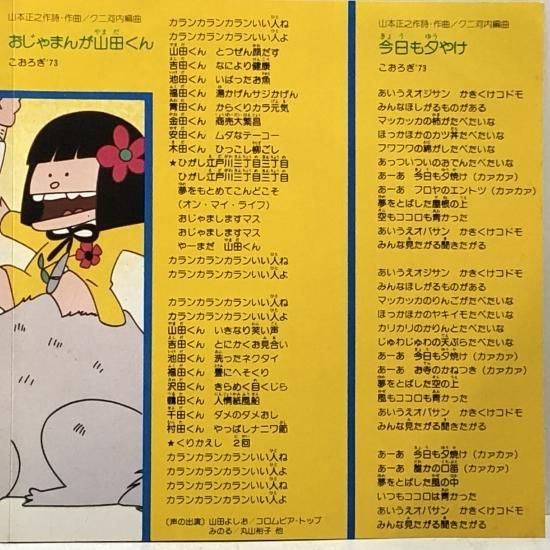 山本正之作詩・作曲/クニ河内編曲
おじゃまんが山田くん
こおろぎ'73
カランカランカランいい人ね
カランカランカランいい人よ
山田くん とつぜん顔だす
吉田くん なにより健康
池田くん いばったお魚
福田くん 湯かげんサジかげん
青田くん からくりカラ元気
金田くん 商売大繁昌
安田くん ムダなテーコー
本田くん ひっこし柳ごし
★ひがし江戸川三丁目三丁目
ひがし江戸川三丁目三丁目
夢をもとめてこんどこそ
(オン・マイ・ライフ)
おじゃましますマス
おじゃましますマス
やーまだ 山田くん
カランカランカランいい人ね
カランカランカランいい人よ
カランカランカランいい人ね
カランカランカランいい人よ
山田くん いきなり笑い声
吉田くん とにかくお見合い
池田くん 洗ったネクタイ
福田くん 畳にへそくり
沢田くん きらめく目くじら
鶴田くん 人情紙風船
千田くん ダメのダメおし
村田くん やっぱしナニワ節
★くりかえし 2回
カランカランカランいい人ね
カランカランカランいい人よ
カランカランカランいい人ね
カランカランカランいい人よ
(声の出演)山田よしお/コロムビア・トップ
みのる/丸山裕子 他
山本正之作詩・作曲/クニ河内編曲
今日も夕やけ
こおろぎ'73
あいうえオジサン かきくけコドモ
みんなほしがるものがある
マッカッカの柿がたべたいな
ほっかほかのカツ丼たべたいな
フワフワの綿がしたべたいな
あっつぃついのおでんたべたいな
あーあ 今日も夕焼け(カァカァ)
あーあ フロヤのエントツ(カァカァ)
夢をとばした屋根の上
空もココロも青かった
あいうえオバサン かきくけコドモ
みんな見たがる聞きたがる
あいうえオジサン かきくけコドモ
みんなほしがるものがある
マッカッカのりんごがたべたいな
ほっかほかのヤキイモたべたいな
カリカリのかりんとたべたいな
じゅわじゅわの天ぷらたべたいな
あーあ 今日も夕焼け(カァカァ)
あーあ お寺のかねつき(カァカァ)
夢をとばした空の上
風もココロも青かった
あいうえオバサン かきくけコドモ
みんな見たがる聞きたがる
あーあ 今日も夕焼け(カァカァ)
あーあ 誰かの口笛(カァカァ)
夢をとばした風の中
いつもココロは青かった
あいうえオバサン かきくけコドモ
みんな見たがる聞きたがる